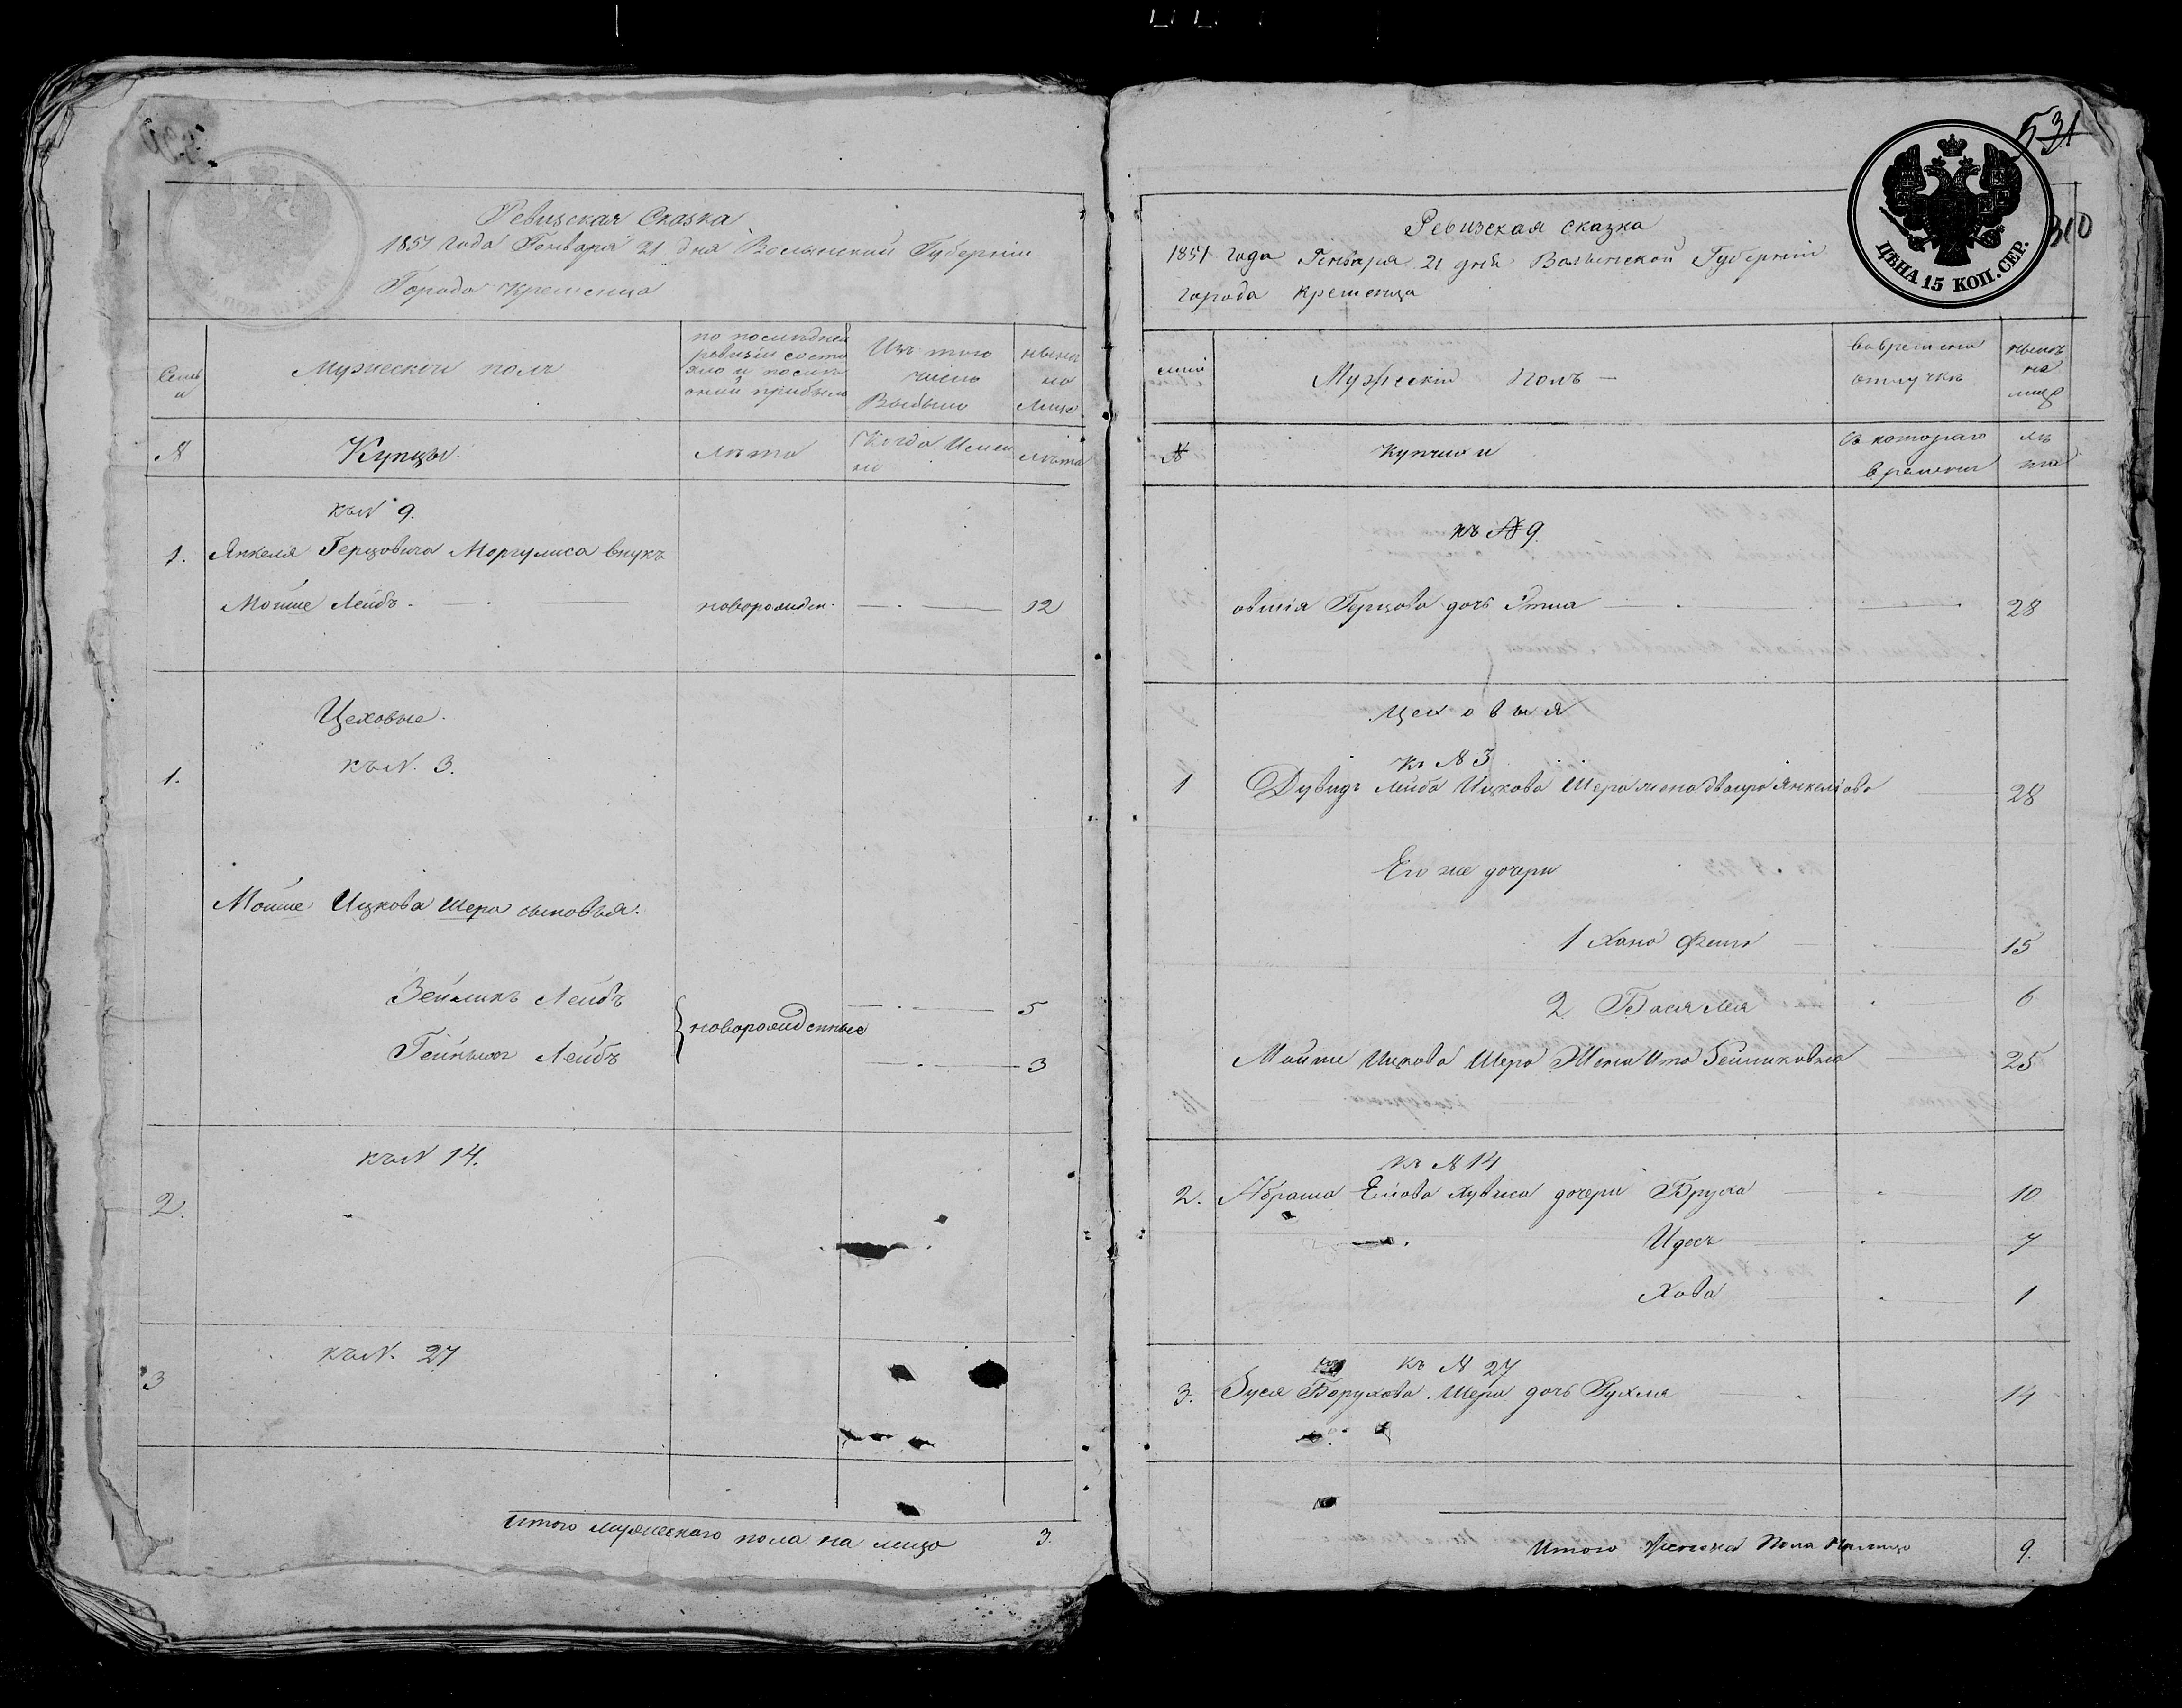 Ревизская Сказка
1851 года Генваря 21 дня Волынской Губернии
Города Кременца
Семьи
Мужеский полъ
по последней
ревизіи состо
яло и после
оной прибыло
Изъ того
числа
Выбыли
ныне
на
Лицо
№
Купцы
лета
Когда Имен
но
лета
къ № 9.
1. Янкеля Герцовича Моргулиса внукъ
Мошие Лейбъ новорожден. 12
Цеховые.
1. къ № 3.
Мошие Ицкова Шера сыновья.
Зейликъ Лейбъ 5
новорожденные
Лейбъ 3
къ № 14.
2.
къ № 27
3
Итого мужескаго пола на лицо 3.
531
310
ЦѢНА 15 КОП. СЕР.
Ревизская сказка
1851 года Генваря 21 дня Волынской Губерніи
города Кременца
Мужескій Полъ
во временной
отлучке
ныне
на
лицо
№
Купчихи
Съ котораго
времени
ле
та
къ № 9
Герцова дочь 28
Цеховыя
къ № 3
1 Дувидъ Лейба Ицкова Шера жена Двойра Янкелiова 28
Его же дочери
1 Хана Фейга 15
2 Бася Лея 6
Мойше Ицкова Шера Жена Ита 25
къ № 14
2. Абрама дочери Бруха 10
Идесъ 7
Хова 1
къ № 27
3. Зуся Борухова Шера дочь Рухля 14
Итого Женска Пола На лицо 9.